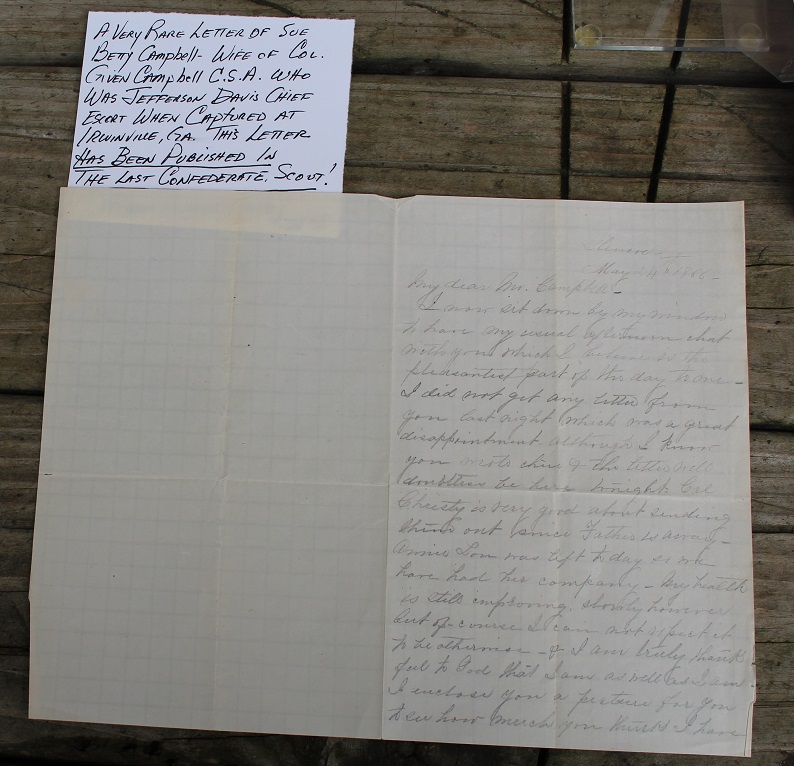 A VERY RARE LETTER OF SUE
BETTY CAMPBELL - WIFE OF COL.
GIVEN CAMPBELL C.S.A. WHO
WAS JEFFERSON DAVIS CHIEF
ESCORT WHEN CAPTURED AT
IRWINVILLE, GA. THIS LETTER
HAS BEEN PUBLISHED IN
THE LAST CONFEDERATE SCOUT!
May
My dear Mr. Campbell -
I now sit down by my window
to have my usual afternoon chat
with you which I believe is the
pleasantest part of the day to me -
I did not get any letter from
you last night which was a great
disappointment although I know
you wrote & the letter will
doubtless be here tonight Col
Christy is very good about sending
them out since Father is away -
Annie Lou was left to day so we
have had her company - My health
is still improving, slowly however
but of course I can not expect it
to be otherwise - & I am truly thank-
ful to God that I am as well as I am -
I enclose you a picture for you
to see how much you think I have